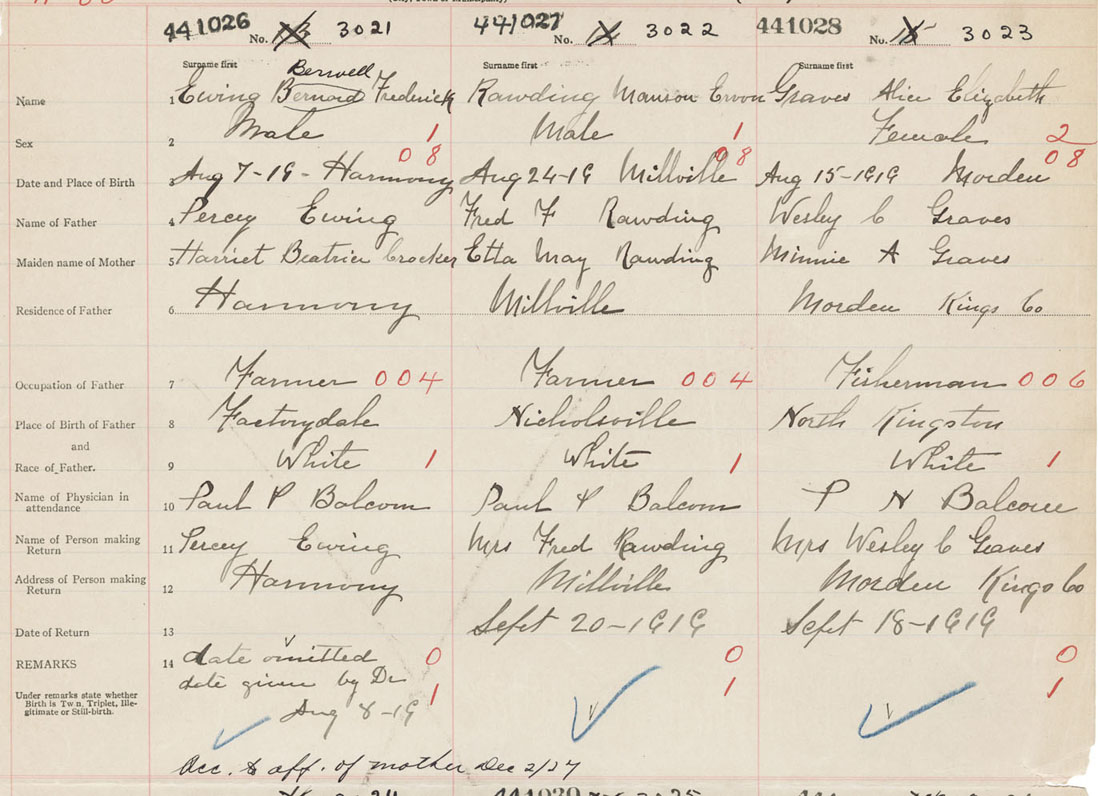 (City, Town or Municipality)
441026 No. 3021 441027 No. 14 3022 441028 No. 15 3023
Surname first Surname first Surname first
Berwell
Name 1 Ewing Bernard Frederick Rawding Manson Ervon Graves Alice Elizabeth
Sex 2 Male 1 Male 1 Female 2
08 08 08
Date and Place of Birth 3 Aug 7-19 - Harmony Aug 24-19 Millville Aug 15-1919 Morden
Name of Father 4 Percey Ewing Fred F Rawding Wesley C Graves
Maiden name of Mother 5 Harriet Beatrice Crocker Etta May Rawding Minnie A Graves
Residence of Father 6 Harmony Millville Morden Kings Co
Occupation of Father 7 Farmer 004 Farmer 004 Fisherman 006
Place of Birth of Father 8 Factorydale Nicholsville North Kingston
and
Race of Father. 9 White 1 White 1 White 1
Name of Physician in attendance 10 Paul P Balcom Paul P Balcom P N Balcom
Name of Person making Return 11 Percey Ewing Mrs Fred Rawding Mrs Wesley C Graves
Address of Person making Return 12 Harmony Millville Morden Kings Co
Date of Return 13 Sept 20-1919 Sept 18-1919
REMARKS 14 date omitted 0 0 0
Under remarks state whether Birth is Twin, Triplet, Illegitimate or Still-birth. date given by Dr 1 1 1
Aug 8-19
Acc. to aff. of mother Dec 2/27
3024 441030 3025